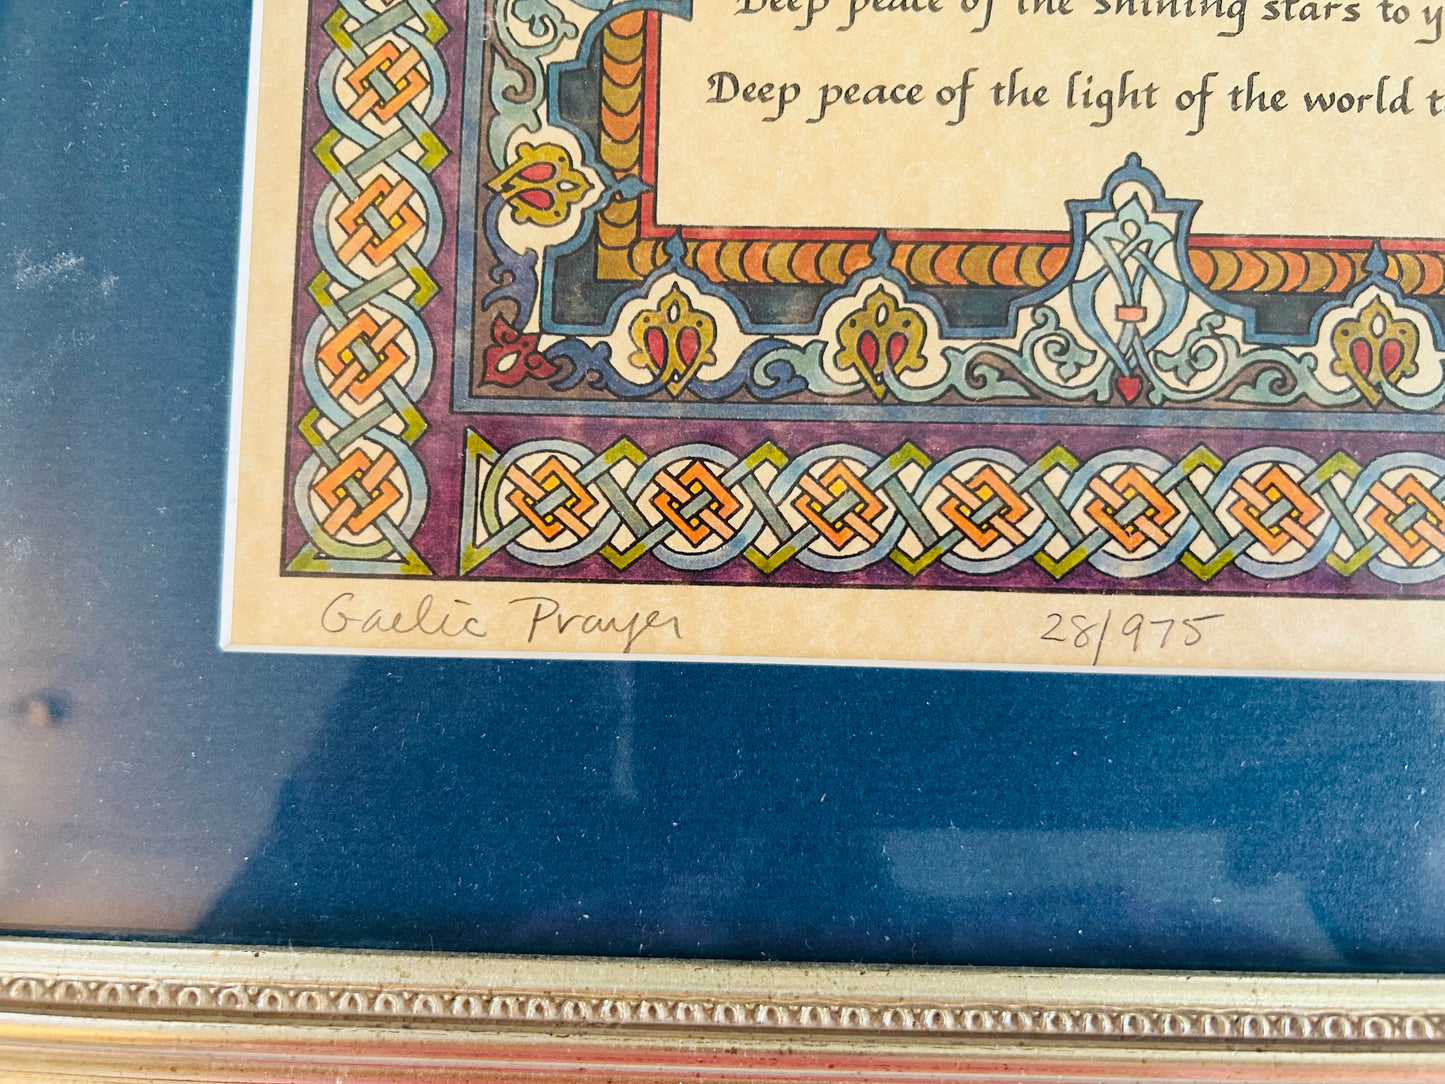 Deep peace of the shining stars to
Deep peace of the light of the world
Gaelic Prayer 28/975